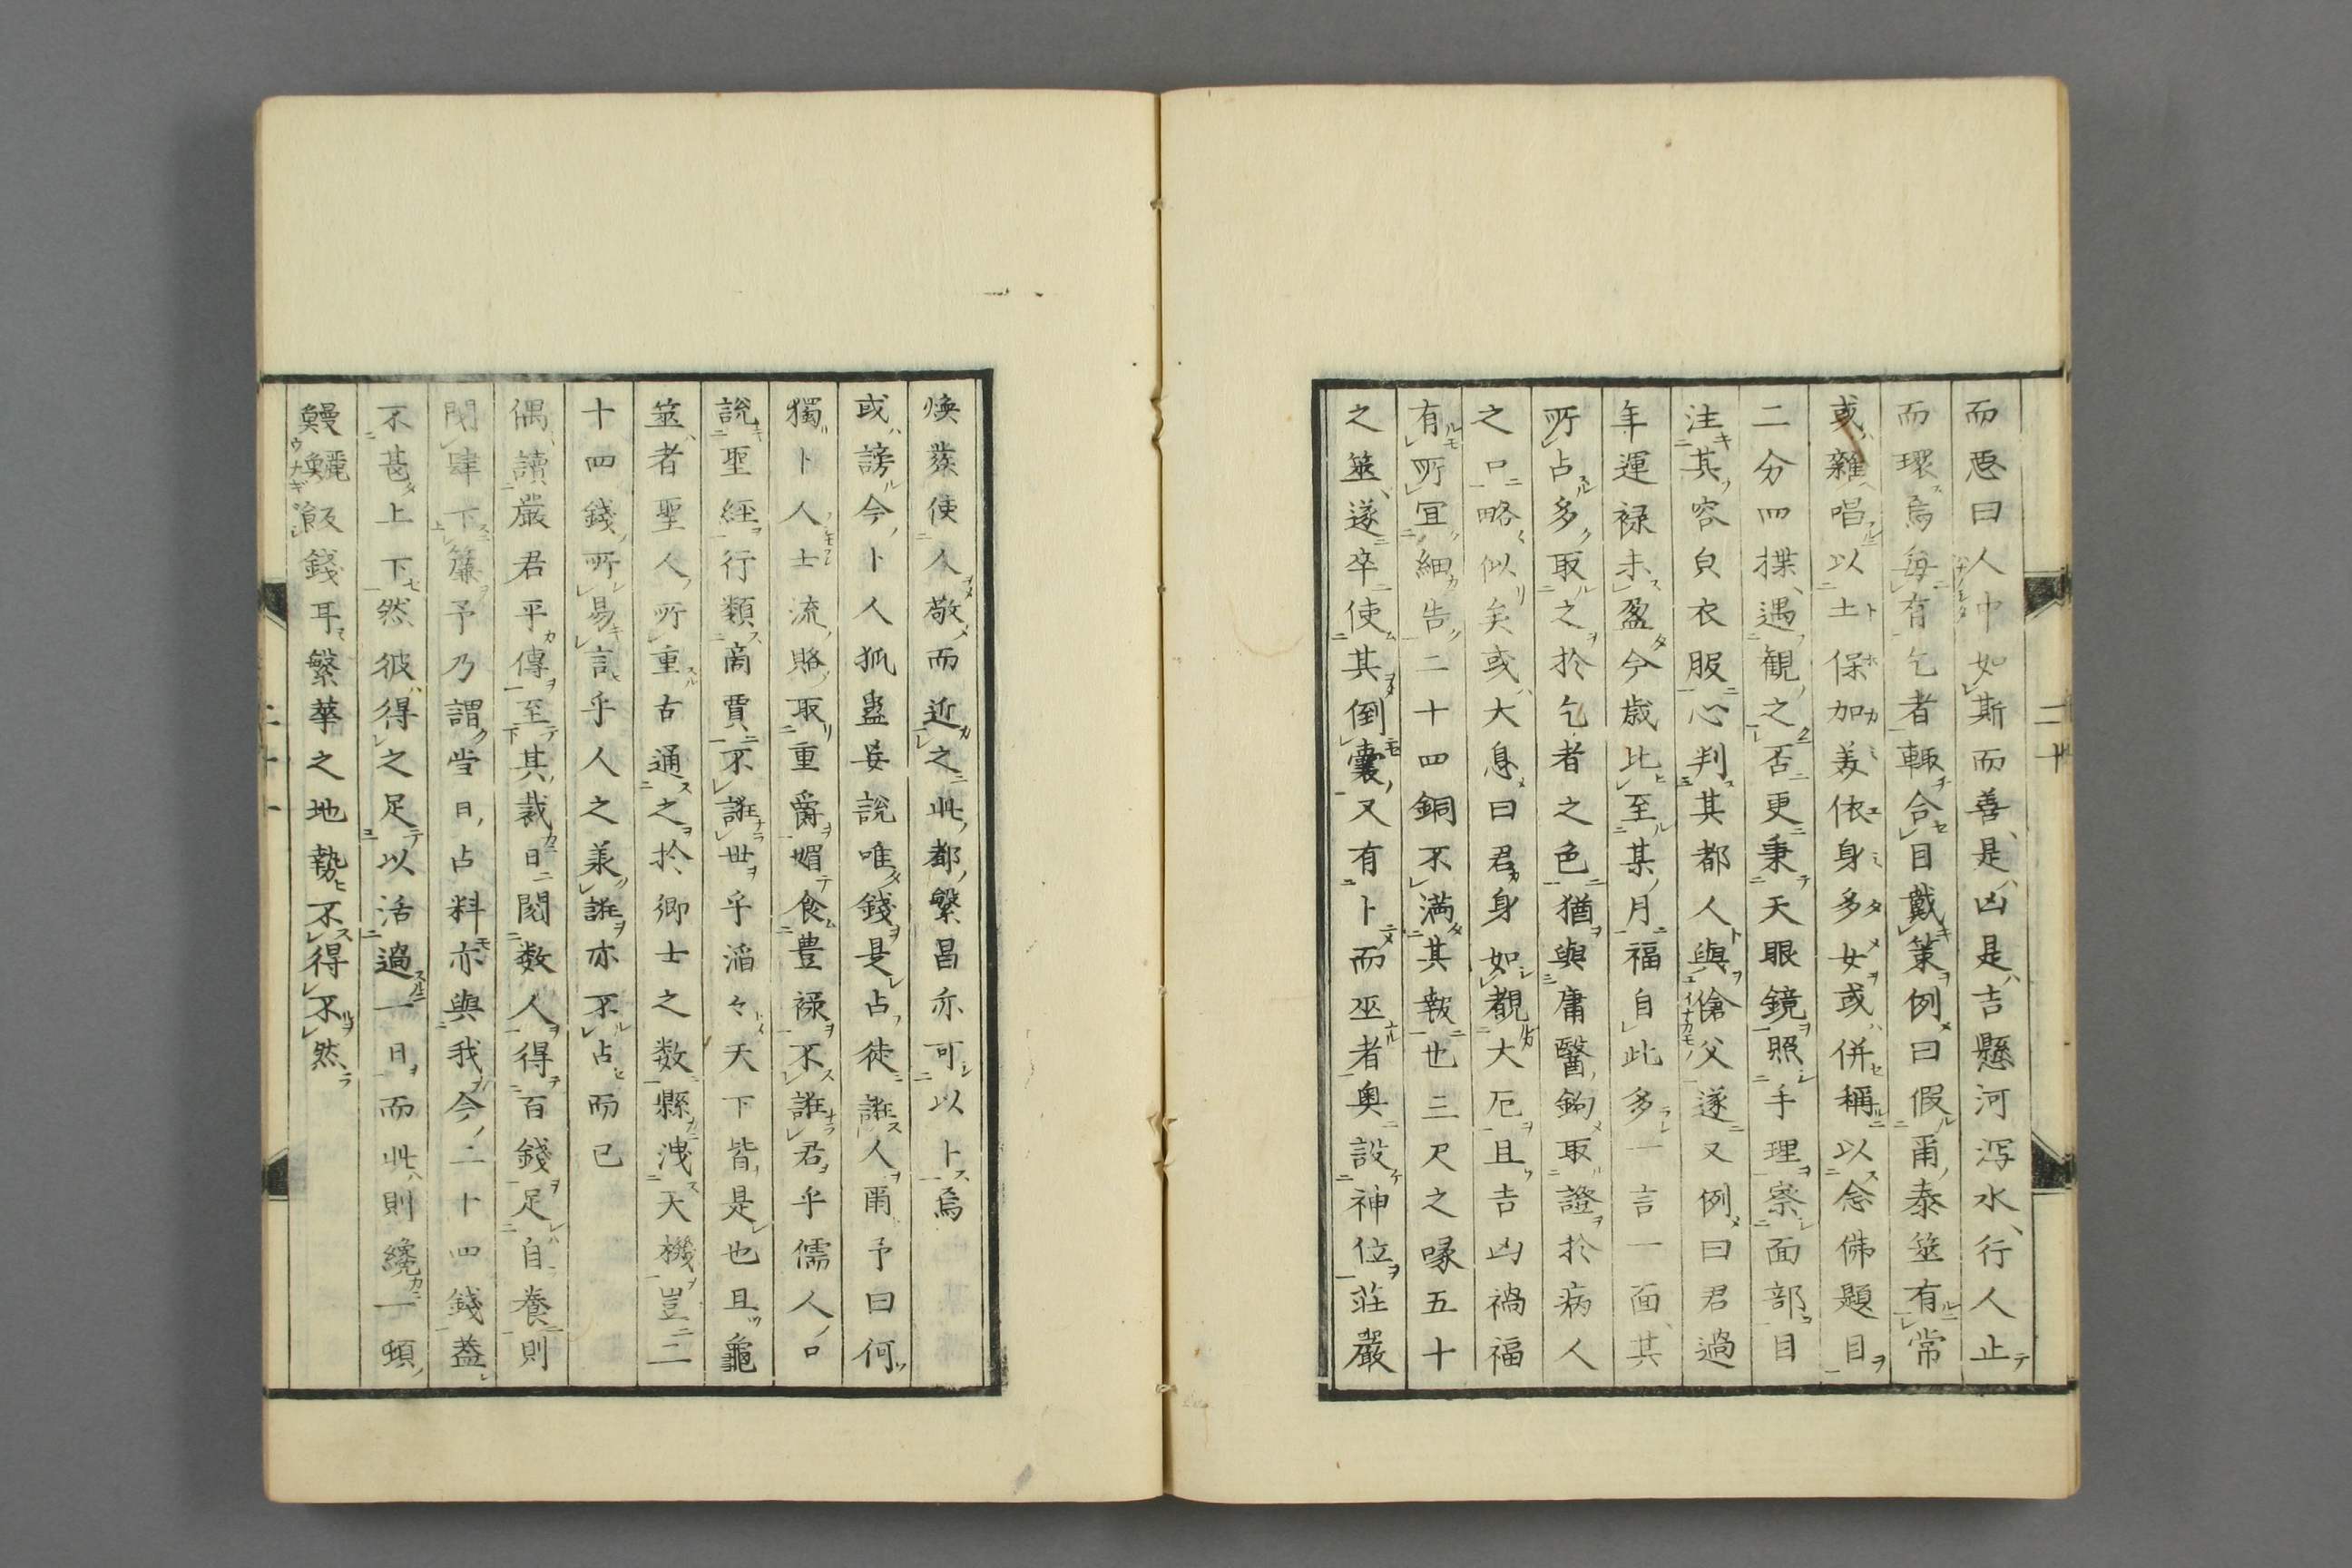 而悪曰人中如斯而善是凶是吉懸河瀉水行人止
而環焉毎有乞者輙合目戴筴例曰假甭泰筮有常
或雜唱以土保加美依身多女或併稱以念佛題目
二分四揲遇観之否更秉天眼鏡照手理察面部目
注其容皃衣服心判其都人與傖父遂又例曰君過
年運禄未盈今歳比至某月福自此多一言一面其
所占多取之於乞者之色猶與庸醫鉤取證於病人
之口略似矣或大息曰君身如覩大厄且吉凶禍福
有所冝細告二十四銅不満其報也三尺之喙五十
之筮遂卒使其倒嚢又有卜而巫者奥設神位荘嚴
二十
煥然使人敬而近之此都繁昌亦可以卜焉
或謗今卜人狐蠱妄説唯錢是占徒誑人甭予曰何
獨卜人士流賂取重爵媚食豊禄不誑君乎儒人口
説聖經行類商賈不誑世乎滔々天下皆是也且龜
筮者聖人所重古通之於卿士之数縣洩天機豈二
十四錢所易言乎人之羕誑亦不占而已
偶讀嚴君平傳至其裁日閲数人得百錢足自養則
閉肆下簾予乃謂当日占料亦與我今二十四錢蓋
不甚上下然彼得之足以活過一日而此則纔一頓
鰻鱺飯錢耳繁華之地勢不得不然